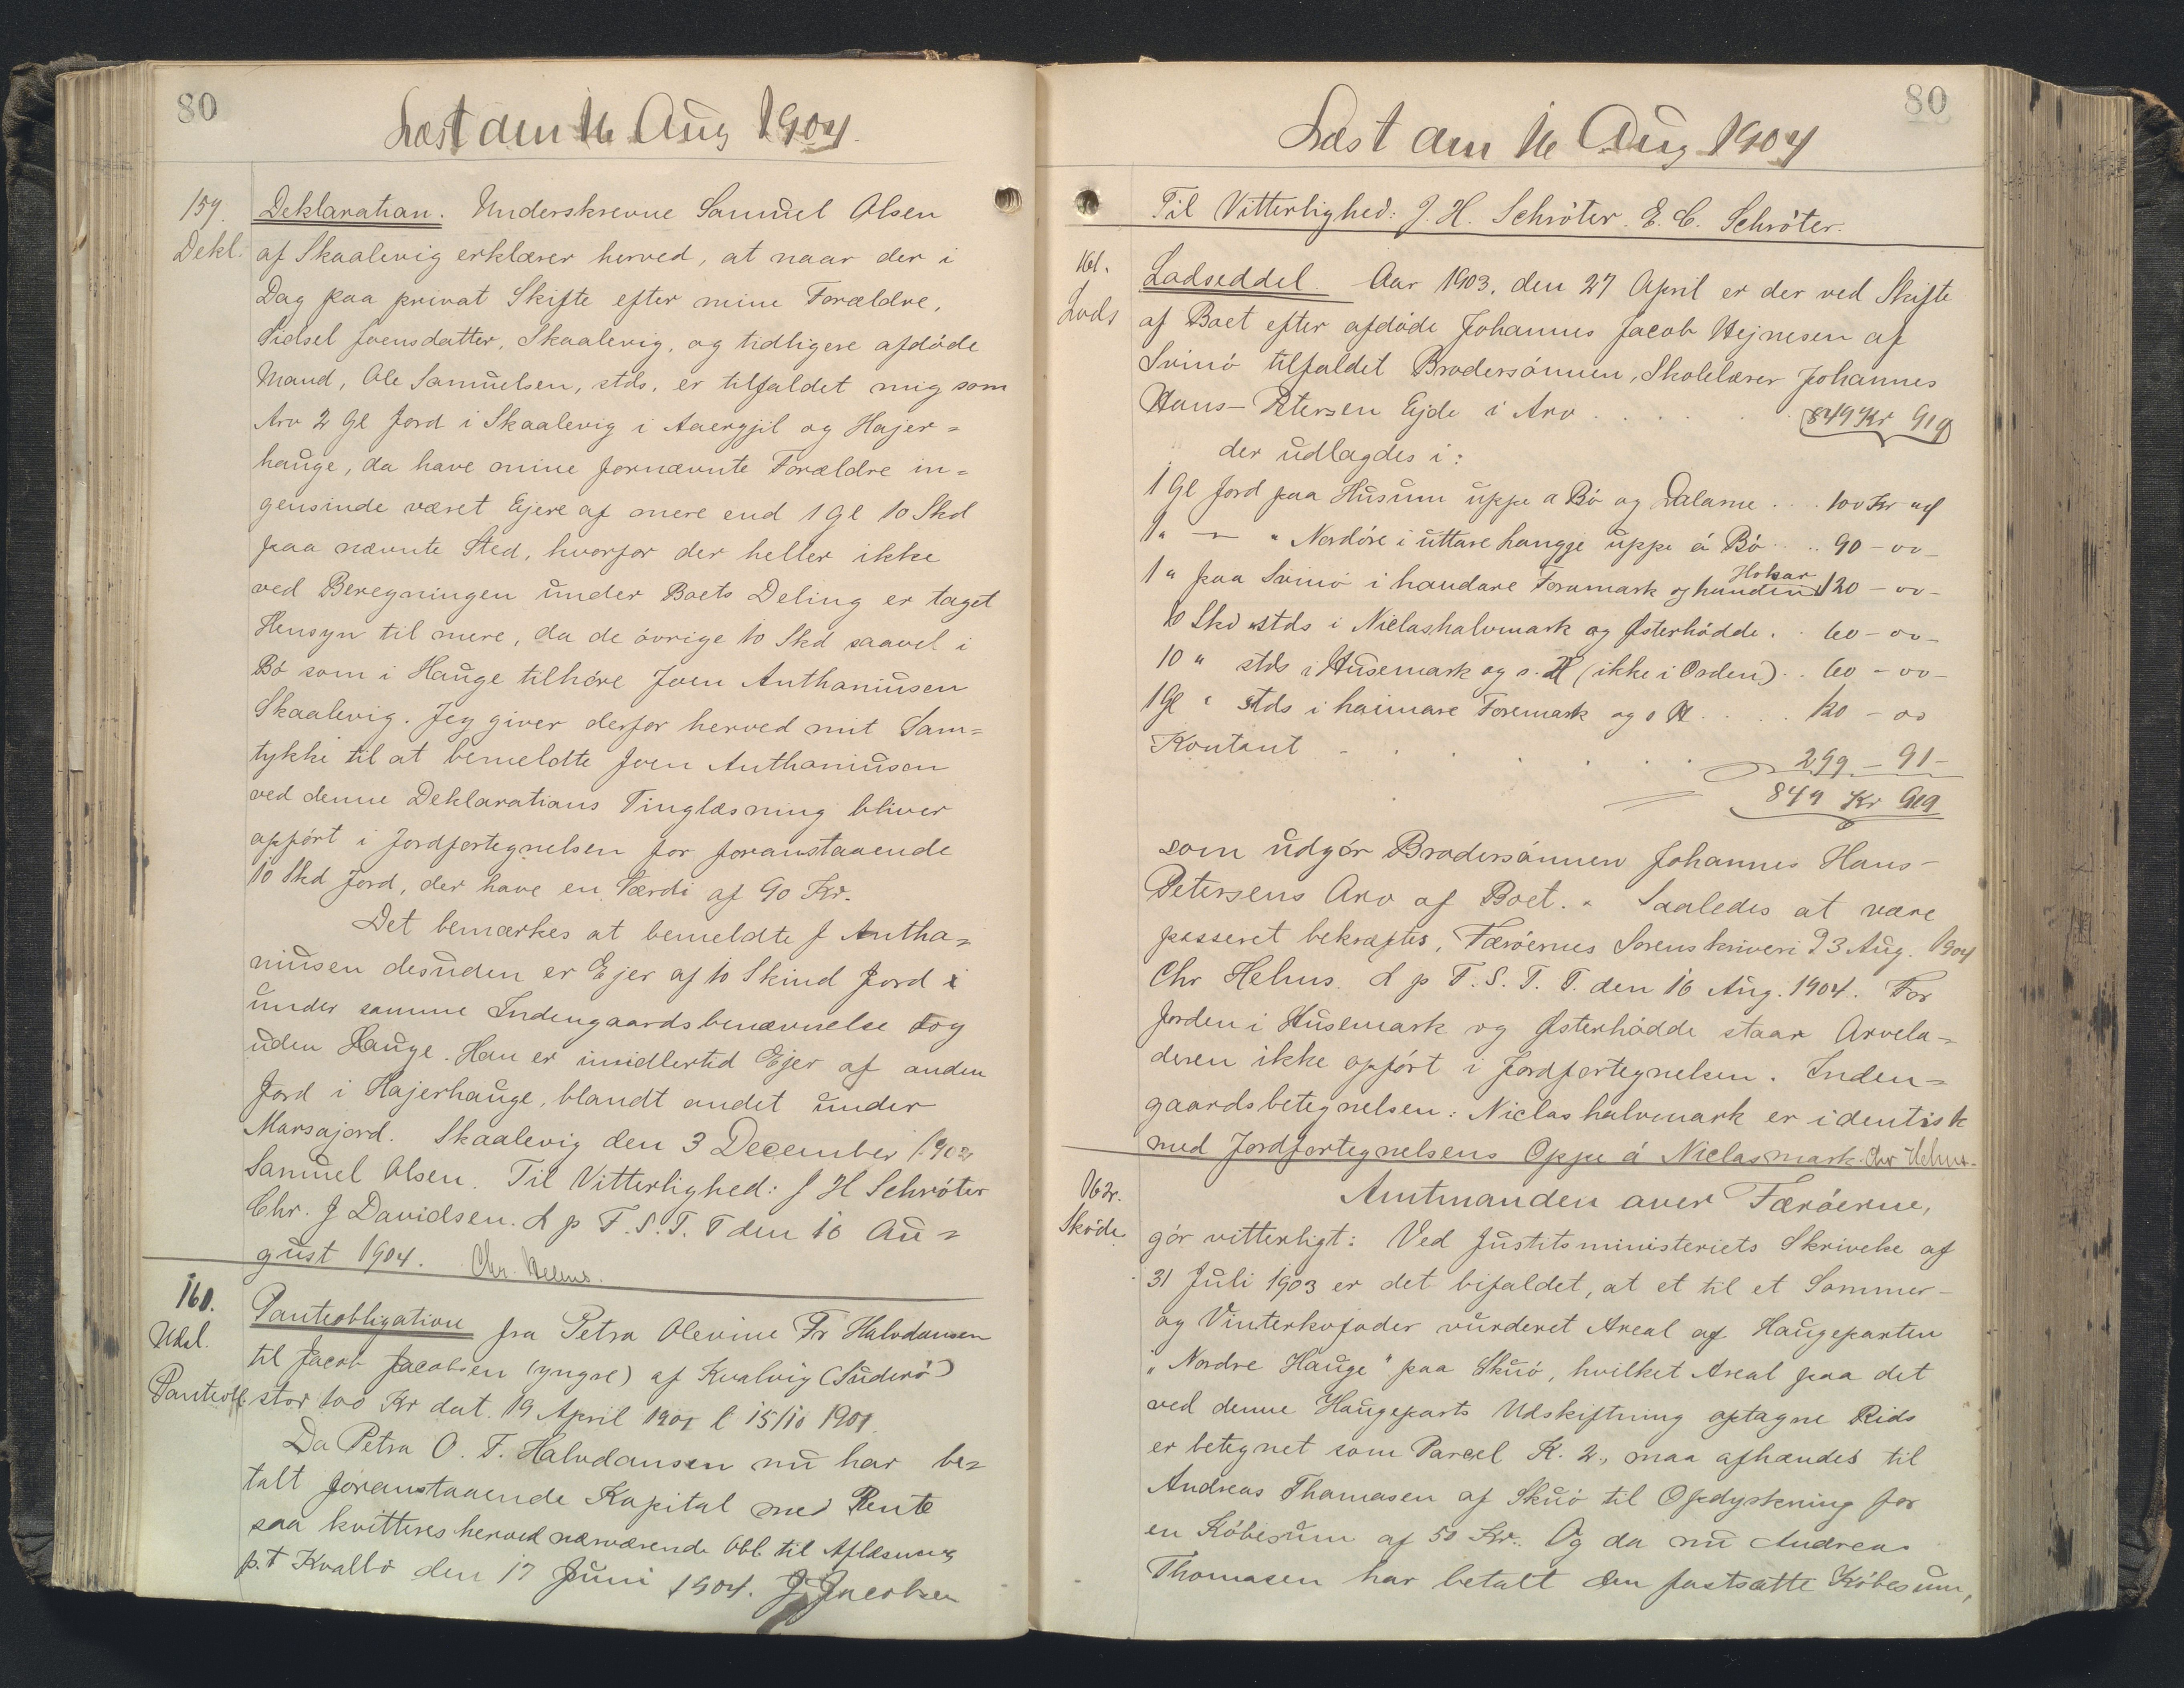 80
Læst den 16 Aug 1904.
159. Deklaration. Underskrevne Samuel Olsen
Dekl. af Skaalevig erklærer herved, at naar der i
Dag paa privat Skifte efter mine Forældre,
Sidsel Joensdatter, Skaalevig, og tidligere afdöde
Mand, Ole Samuelsen, stds, er tilfaldet mig som
Arv 2 Gl Jord i Skaalevig i Aaergjil og Hajer=
hauge, da have mine fornævnte Forældre in=
gensinde været Ejere af mere end 1 gl 10 Skd
paa nævnte Sted, hvorfor der heller ikke
ved Beregningen under Boets Deling er taget
Hensyn til mere, da de övrige 10 Skd saavel i
Bö som i Hauge tilhöre Joen Anthoniusen
Skaalevig. Jeg giver derfor herved mit Sam=
tykke til at bemeldte Joen Anthoniusen
ved denne Deklarations Tinglæsning bliver
opfört i Jordfortegnelsen for foranstaaende
10 Skd Jord, der have en Værdi af 90 Kr.
Det bemærkes at bemeldte J Antho=
niusen desuden er Ejer af 10 Skind Jord i
under samme Indengaardsbenævnelse dog
uden Hauge. Han er imidlertid Ejer af anden
Jord i Hajerhauge, blandt andet under
Marsajord. Skaalevig den 3 December 1902
Samuel Olsen. Til Vitterlighed: J H Schröter
Chr. J Davidsen. L p F. S. T. T den 16 Au=
gust 1904. Chr. Helms.
160. Panteobligation fra Petra Olevine Fr Halvdansen
Udsl. til Jacob Jacobsen (yngre) af Kvalvig (Suderö)
Panteobl. stor 100 Kr dat. 19 April 1901 l 15/10 1901.
Da Petra O. F. Halvdansen nu har be=
talt foranstaaende Kapital med Rente
saa kvitteres herved nærværende Obl. til Aflæsning
p.t Kvalbö den 17 Juni 1904. J. Jacobsen
80
Læst den 16 Aug 1904
Til Vitterlighed: J. H. Schröter. E. C. Schröter.
161. Lodseddel. Aar 1903, den 27 April er der ved Skifte
Lods af Boet efter afdöde Johannes Jacob Hejnesen af
Svinö tilfaldet Brodersönnen, Skolelærer Johannes
Hans-Petersen Ejde i Arv . . . . 849 Kr 91 ø
der udlagdes i:
1 Gl Jord paa Husum uppe a Bö og Dalarne . . . 100 Kr
1 " — " Nordöre i uttare hangje uppe á Bö . . . 90 - oo -
1 " paa Svinö i handare Foramark og hundin Hokar 120 - oo -
10 Skd " stds i Niclashalvmark og Østerhödde . . 60 - oo -
10 " stds i Husemark og s. H (ikke i Orden) . . 60 - oo -
1 Gl " stds i haimare Foremark og s H . . . . 120 - oo
Kontant . . . . . . 299 - 91 -
849 Kr 91 ø
som udgör Brodersönnen Johannes Hans-
Petersens Arv af Boet. " Saaledes at være
passeret bekræftes, Færöernes Sorenskriveri d 3 Aug. 1904
Chr Helms. L p T. S. T. T. den 16 Aug. 1904. For
Jorden i Husemark og Østerhödde staar Arvela=
deren ikke opfört i Jordfortegnelsen. Inden=
gaardsbetegnelsen: Niclashalvmark er identisk
med Jordfortegnelsens Oppe á Niclasmark. Chr Helms.
162. Amtmanden over Færöerne,
Sköde. gör vitterligt: Ved Justitsministeriets Skrivelse af
31 Juli 1903 er det bifaldet, at et til et Sommer-
og Vinterkofoder vurderet Areal af Haugeparten
"Nordre Hauge" paa Skuö, hvilket Areal paa det
ved denne Haugeparts Udskiftning optagne Rids
er betegnet som Parcel K. 2., maa afhændes til
Andreas Thomasen af Skuö til Opdyrkning for
en Köbesum af 50 Kr. Og da nu Andreas
Thomasen har betalt den fastsatte Köbesum,